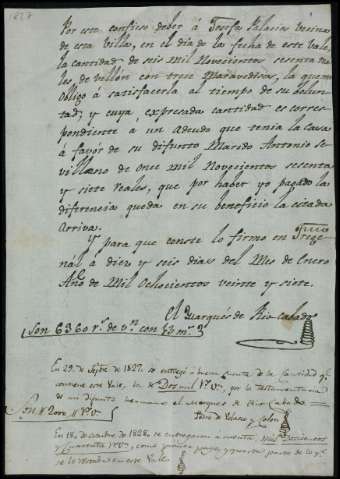 1827
Por esta confieso deber á Josefa Palacios vecina
de esta Villa, en el dia de la fecha de este Vale
la cantidad de seis mil Novecientos sesenta rea
les, de vellon con trece Maravedises, la que me
obligo á satisfacerla al tiempo de su volun
tad; y cuya expresada cantidad es corres-
pondiente á un adeudo que tenia la Casa
á favor de su difunto Marido Antonio Se
villano de once mil Novecientos sesenta
y siete reales, que por haber yo pagado la
diferencia queda en su beneficio la citada
Arriva.
Y para que conste lo firmo en Frege
nál á diez y seis dias del Mes de Enero
Año de Mil Ochocientos veinte y siete.
El Marqués de Rio-cabado
Son 6360 rs. de vn. con 13 ms.
En 29 de Sepbre de 1827 se entregó á buena cuenta de la Cantidad qe
contiene este Vale, la de Dos mil rs. vn. por la testamentaria
de mi difunto hermano el Marques de Rio Cabado
Pedro de Velasco y Colon
Son 2000 rs. vn.
En 18 de octubre de 1828 se entregaron á cuenta, mil
y Cuarenta rs. vn.
este Vale